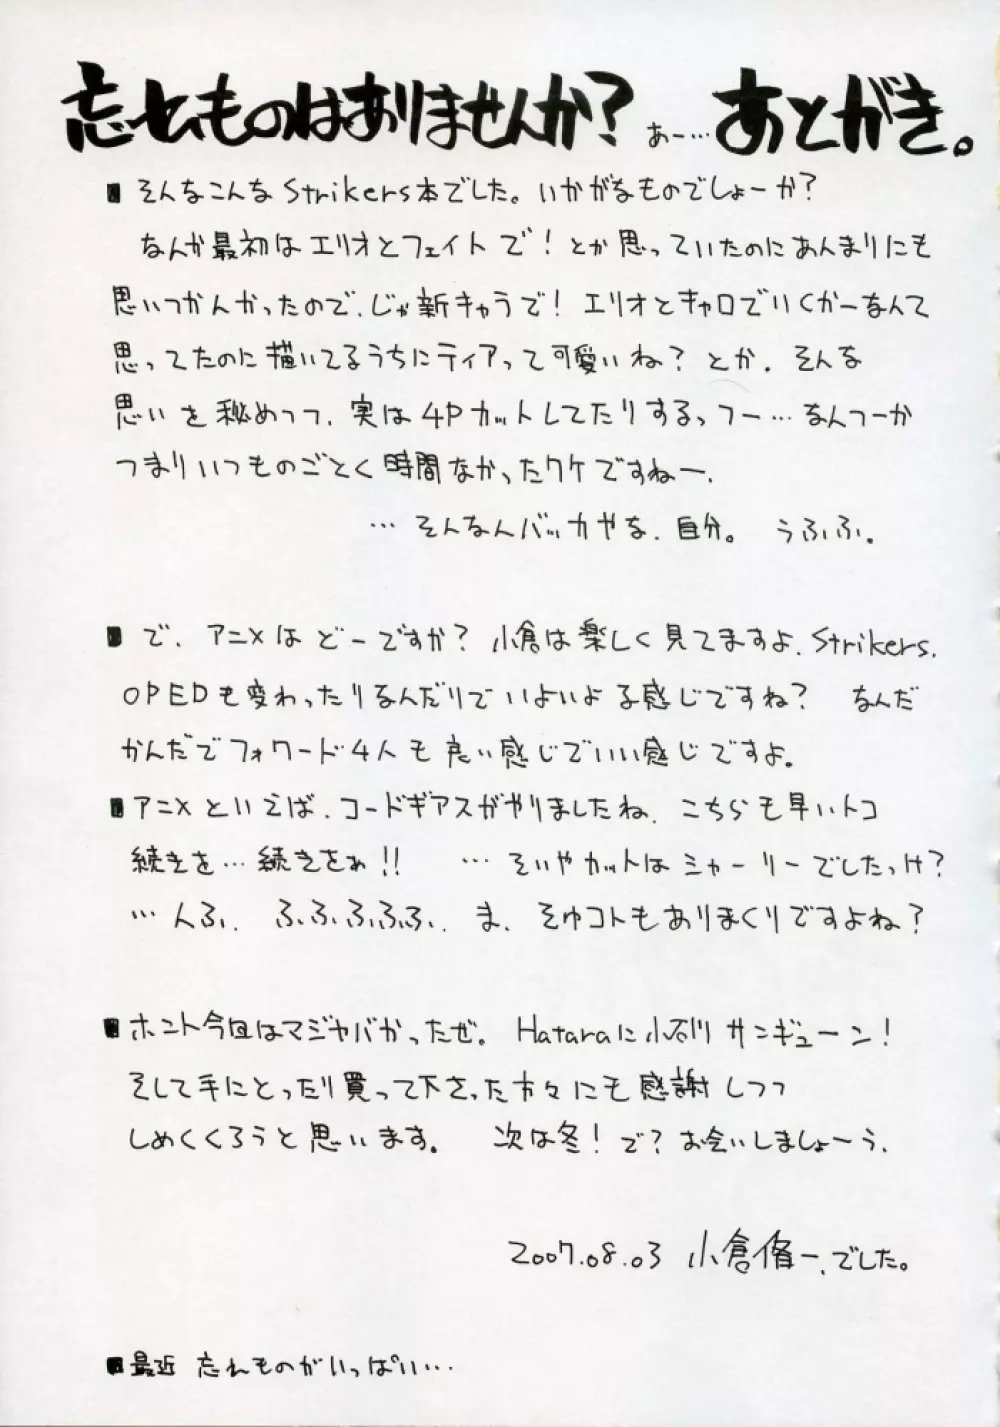 忘れものはありませんか? あー… あとがき。
■そんなこんなStrikers本でした。いかがなものでしょーか?
なんか最初はエリオとフェイトで!とか思っていたのにあんまりにも
思いつかんかったので、じゃ新キャラで!エリオとキャロでいくかーなんて
思ってたのに描いてるうちにティアって可愛いね?とか、そんな
思いを秘めつつ、実は4Pカットしてたりするっつー…なんつーか
つまりいつものごとく時間なかったワケですねー、
…そんなんバッカやな、自分。 うふふ。
■で、アニメはどーですか?小倉は楽しく見てますよ、Strikers.
OPEDも変わったりなんだりでいよいよな感じですね? なんだ
かんだでフォワード4人も良い感じでいい感じですよ。
■アニメといえば、コードギアスがやりましたね、こちらも早いトコ
続きを…続きをぉ!! …そいやカットはシャーリーでしたっけ?
…んふ、 ふふふふふ、 ま、そゆコトもありまくりですよね?
■ホント今回はマジヤバかったぜ。 Hataraに小石川 サンギューン!
そして手にとったり買って下さった方々にも感謝しつつ
しめくくろうと思います。 次は冬!で?お会いしましょーう、
2007.08.03 小倉脩一、でした。
■最近 忘れものがいっぱい…